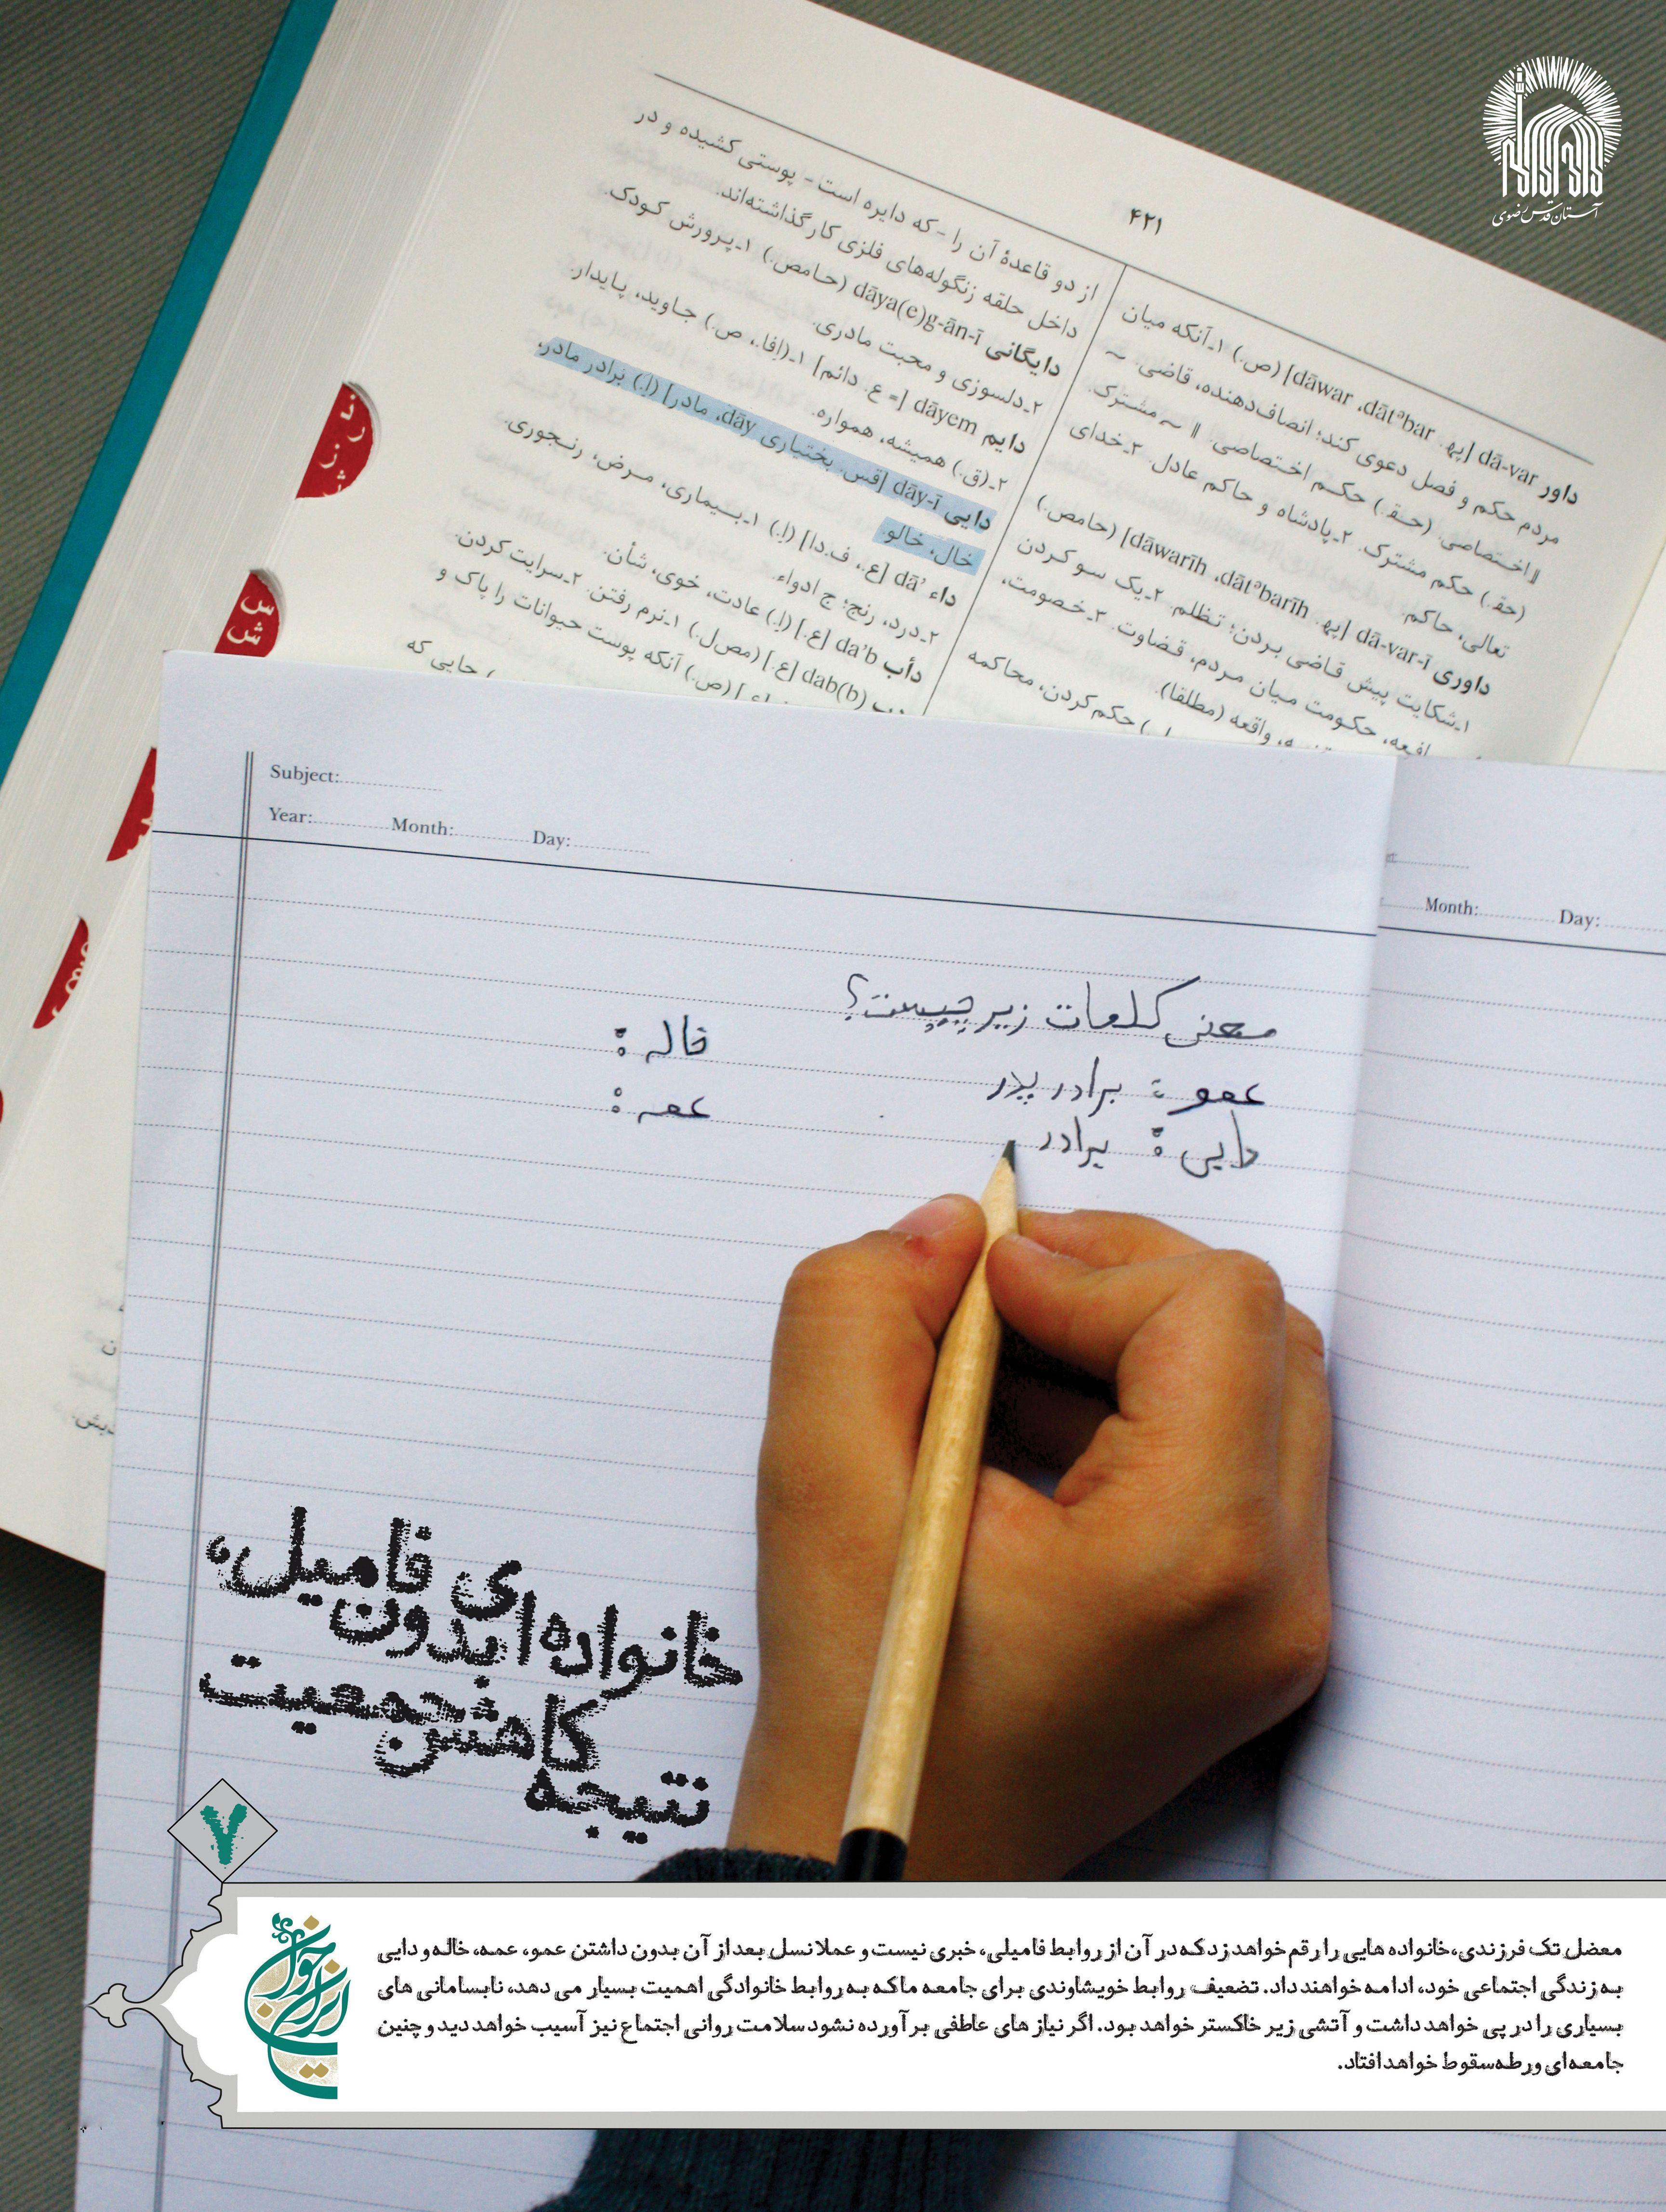 آستان قدس رضوی
۴۲۱
داور dā-var [پهـ. dāwar ،dātᵊbar] (ص.) ۱ـ آنکه میان
مردم حکم و فصل دعوی کند؛ انصاف‌دهنده، قاضی. ~
اختصاصی. (حقـ.) حکم اختصاصی. ‖ ~ مشترک.
(حقـ.) حکم مشترک. ۲ـ پادشاه و حاکم عادل. ۳ـ خدای
تعالی، حاکم.
داوری dā-var-ī [پهـ. dāwarīh ،dātᵊbarīh] (حامص.)
۱ـ شکایت پیش قاضی بردن؛ تظلم. ۲ـ یک سو کردن
حکومت میان مردم، قضاوت. ۳ـ خصومت،
واقعه (مطلقا).
) حکم کردن، محاکمه
از دو قاعدهٔ آن را - که دایره است - پوستی کشیده و در
داخل حلقه زنگوله‌های فلزی کار گذاشته‌اند.
دایگانی dāya(e)g-ān-ī (حامص.) ۱ـ پرورش کودک.
۲ـ دلسوزی و محبت مادری.
دایم dāyem [= ع. دائم] ۱ـ (اِفا.، ص.) جاوید، پایدار.
۲ـ (ق.) همیشه، همواره.
دایی dāy-ī [قس. بختیاری dāy، مادر] (اِ.) برادر مادر،
خال، خالو.
داء dā' [ع.، ف.دا] (اِ.) ۱ـ بیماری، مرض، رنجوری.
۲ـ درد، رنج؛ ج ادواء.
دأب da'b [ع.] (اِ.) عادت، خوی، شأن.
dab(b) [ع.] (مص‌ل.) ۱ـ نرم رفتن. ۲ـ سرایت کردن.
(ص.) آنکه پوست حیوانات را پاک و
) جایی که
س
ش
Subject:
Year: Month: Day:
Month: Day:
معنی کلمات زیر چیست؟
عمو : برادر پدر
دایی : برادر
خاله :
عمه :
خانواده ای بدون فامیل،
نتیجه کاهش جمعیت
۷
ایران جوان
معضل تک فرزندی،خانواده هایی را رقم خواهد زد که در آن از روابط فامیلی، خبری نیست و عملا نسل بعد از آن بدون داشتن عمو، عمه، خاله و دایی
به زندگی اجتماعی خود، ادامه خواهند داد. تضعیف روابط خویشاوندی برای جامعه ما که به روابط خانوادگی اهمیت بسیار می دهد، نابسامانی های
بسیاری را در پی خواهد داشت و آتشی زیر خاکستر خواهد بود. اگر نیاز های عاطفی برآورده نشود سلامت روانی اجتماع نیز آسیب خواهد دید و چنین
جامعه ای ورطه سقوط خواهد افتاد.